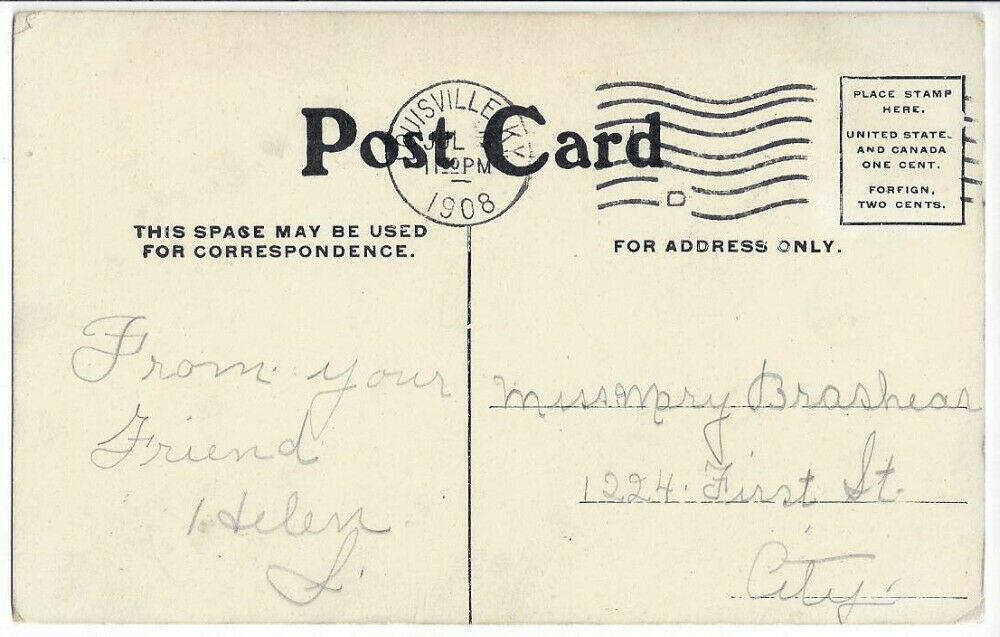 Post Card
LOUISVILLE, KY.
JUL
PM
1908
D
PLACE STAMP
HERE.
UNITED STATE.
AND CANADA
ONE CENT.
FORFIGN,
TWO CENTS.
THIS SPACE MAY BE USED
FOR CORRESPONDENCE.
FOR ADDRESS ONLY.
From your
Friend
Helen
S.
Miss Mary Brashear
1224 First St
City